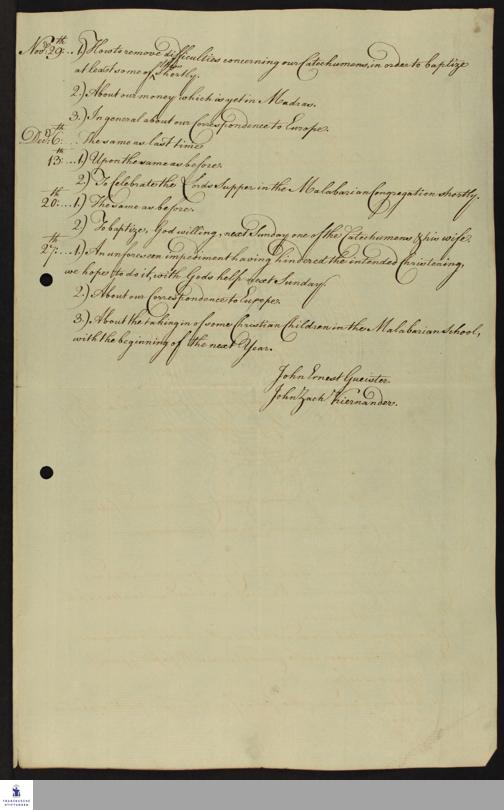 Nov: 29th ... 1.) How to remove difficulties concerning our Catechumens, in order to baptize
at least some of them shortly.
2.) About our money which is yet in Madras.
3.) In general about our Correspondence to Europe.
Dec: 6th: ... The same as last time
13th: ... 1.) Upon the same as before.
2.) To celebrate the Lords Supper in the Malabarian Congregation shortly.
20th: ... 1.) The same as before.
2.) To baptize, God willing, next Sunday one of the Catechumens & his wife.
27th: ... 1.) An unforeseen impediment having hindered the intended Christening,
we hope to do it, with Gods help next Sunday.
2.) About our Correspondence to Europe.
3.) About the taking in of some Christian Children in the Malabarian School,
with the beginning of the next Year.
John Ernest Gueister.
John Zach Kiernander.
FRANCKESCHE
STIFTUNGEN